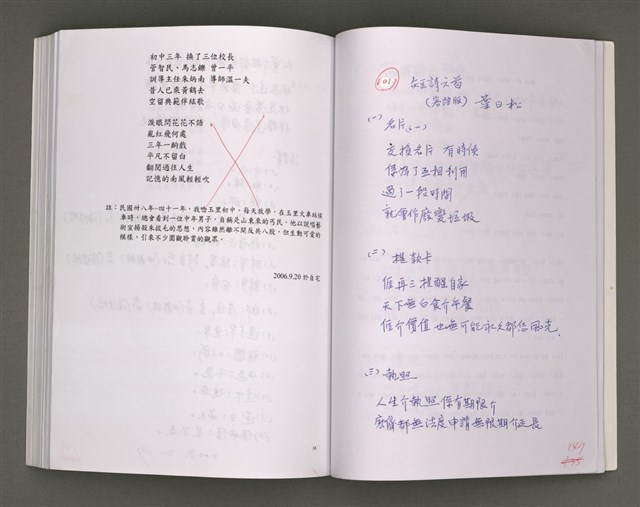 初中三年 換了三位校長
管智民、馬志鑠 曾一平
訓導主任朱炳南 導師溫一夫
昔人已乘黃鶴去
空留典範伴絃歌
淚眼問花花不語
亂紅飛何處
三年一齣戲
平凡不留白
翻閱過往人生
記憶的南風輕輕吹
註：民國卅八年-四十一年，我唸玉里初中，每天放學，在玉里火車站候
車時，總會看到一位中年男子，自稱是山東來的丐民，他以說唱藝
術宣揚殺朱拔毛的思想，內容雖然離不開反共八股，但生動可愛的
模樣，引來不少圍觀聆賞的觀眾。
2006.9.20 於自宅
(101)
短詩六首
(客語版) 葉日松
(一) 名片(一)
交換名片 有時候
係為了互相利用
過了一段時間
就會作廢變垃圾
(二) 提款卡
𠊎再三提醒自家
天下無白食介午餐
𠊎介價值 也無可能永久都恁風光.
(三) 執照
人生介執照係有期限介
麼儕都無法度申請無限期介延長